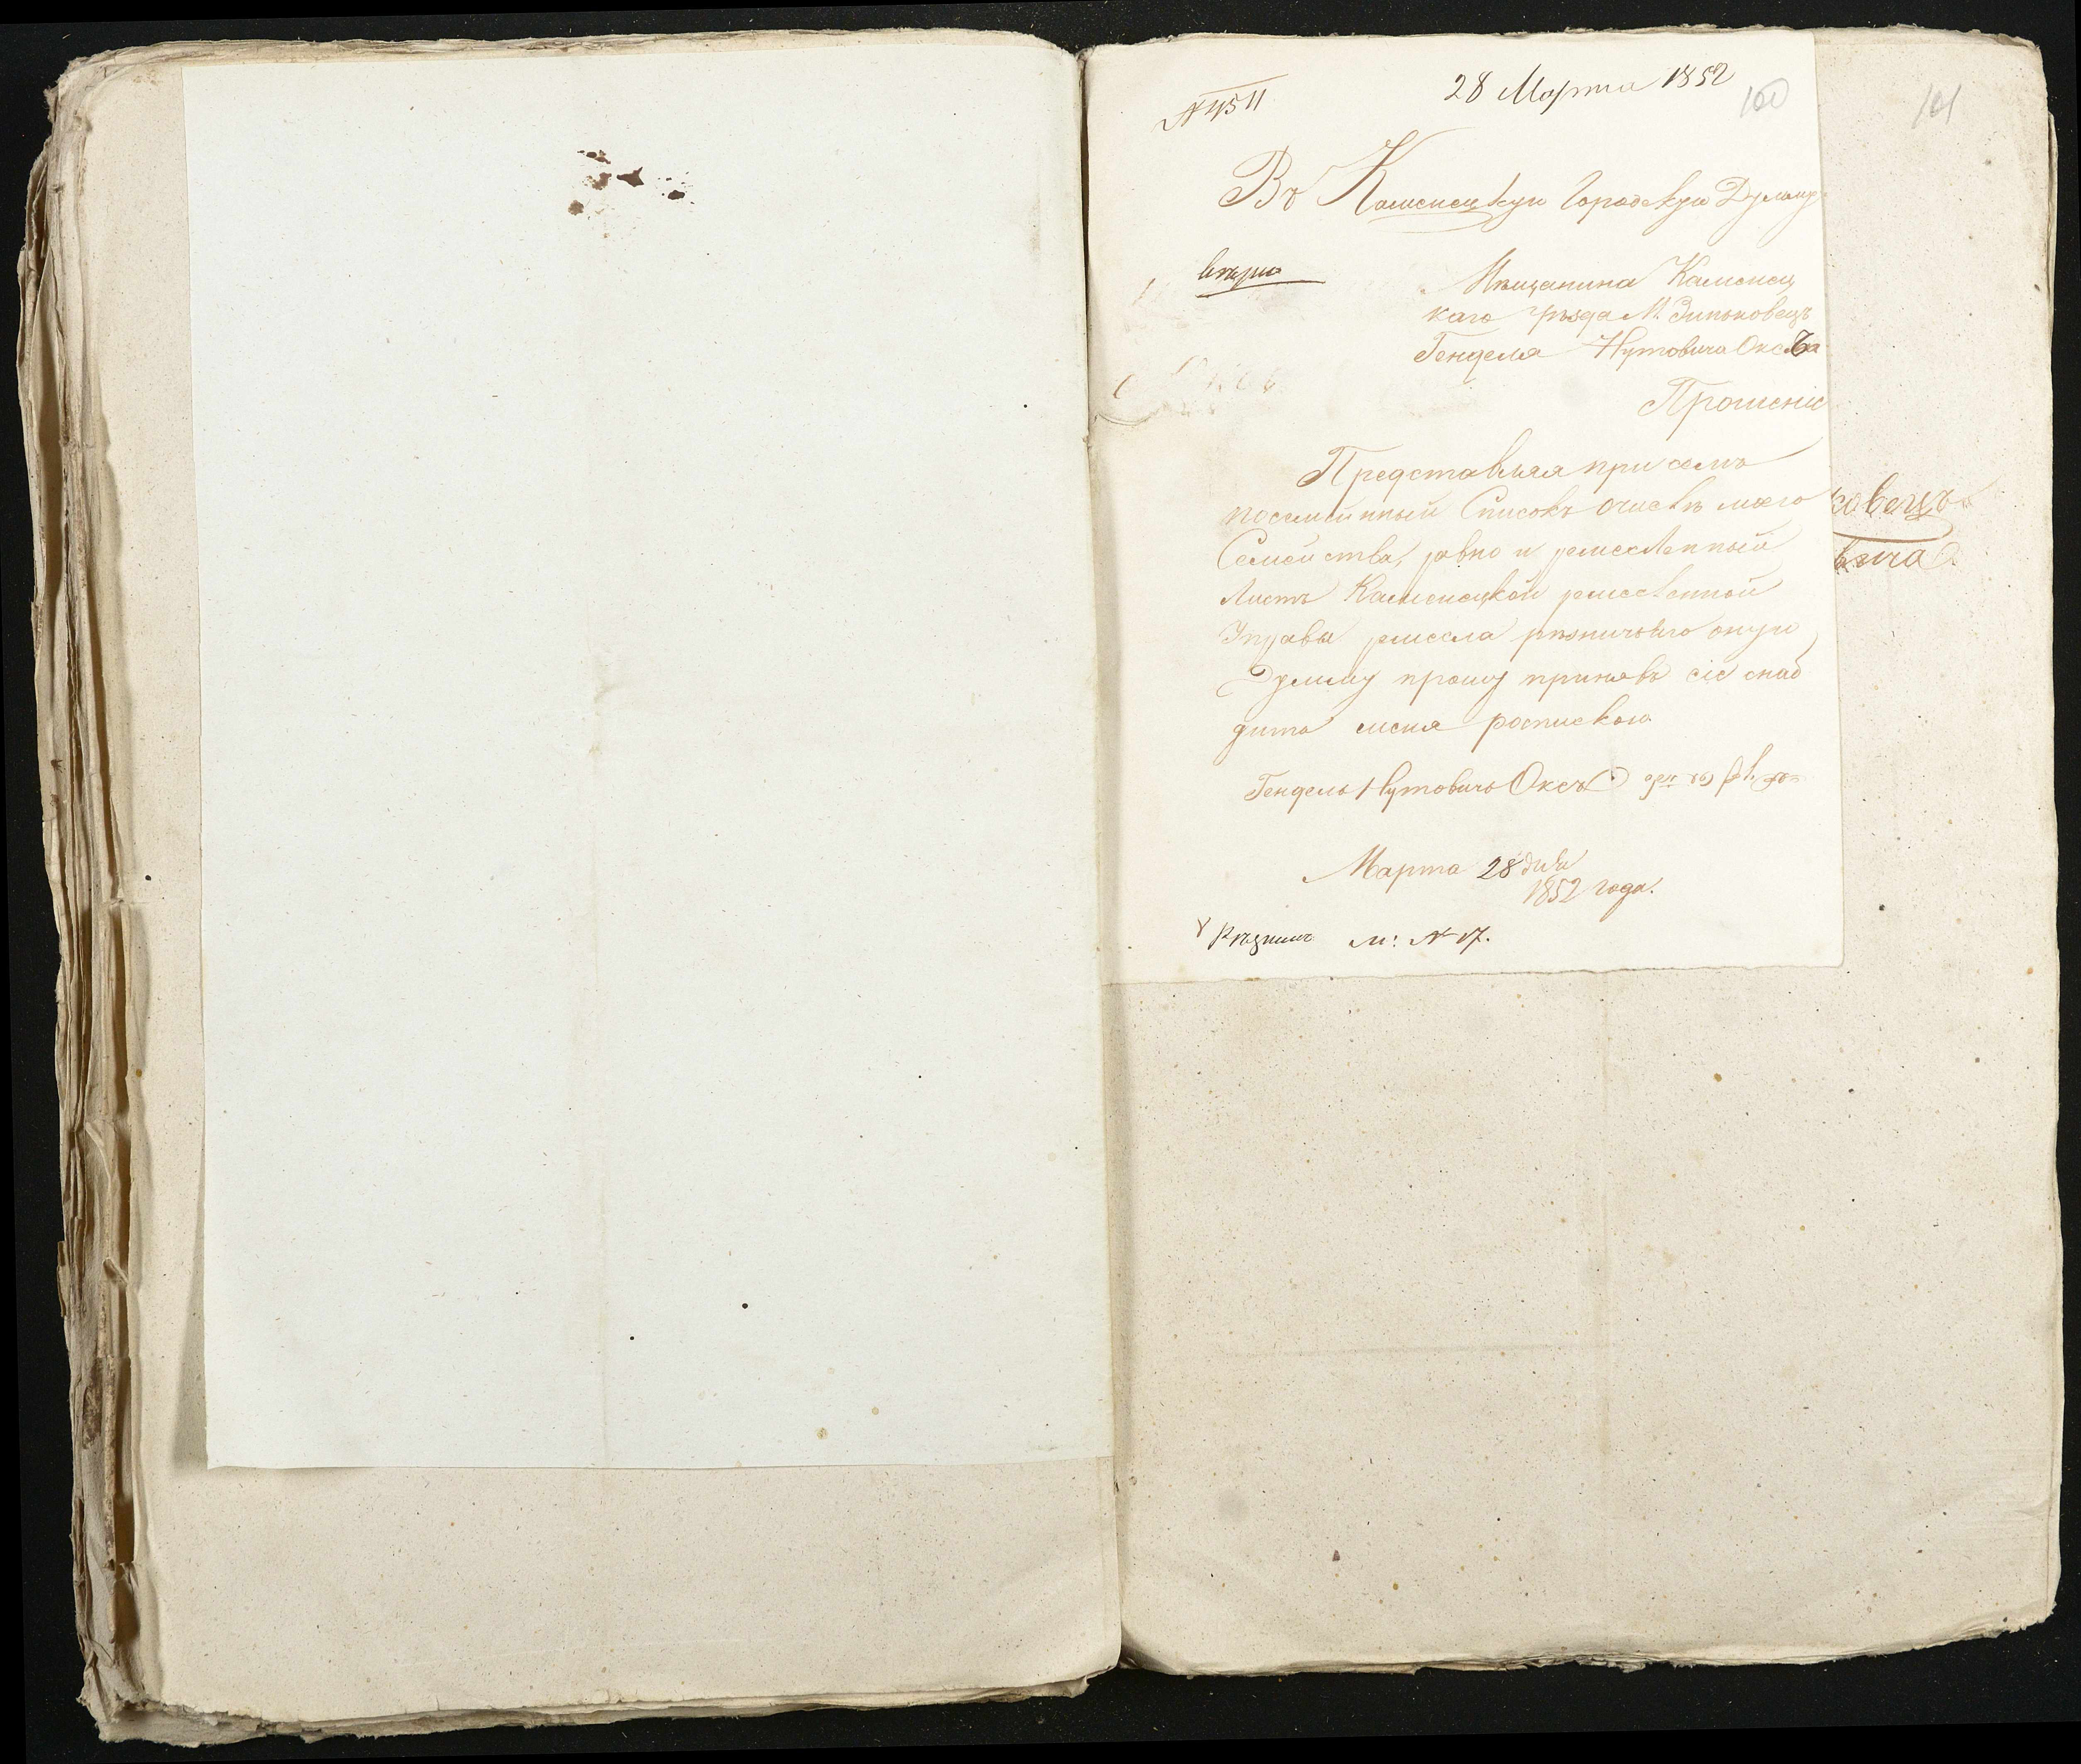 № 4511
28 Марта 1852
100
101
Въ Каменецкую Городскую Думу
вѣрно
Мѣщанина Каменец
каго уѣзда М. Зиньковецъ
Генделя Нутовича Окса
Прошеніе
Представляя при семъ
посемейнный Списокъ о числѣ моего
Семейства, равно и ремесленный
Листъ Каменецкой ремесленной
Управы ремесла рѣзничьяго оную
Думу прошу принявъ сіе снаб
дить меня роспискою
Гендель Нутовичъ Оксъ
Марта 28 дня
1852 года.
м: № 17.
ковецъ
вича